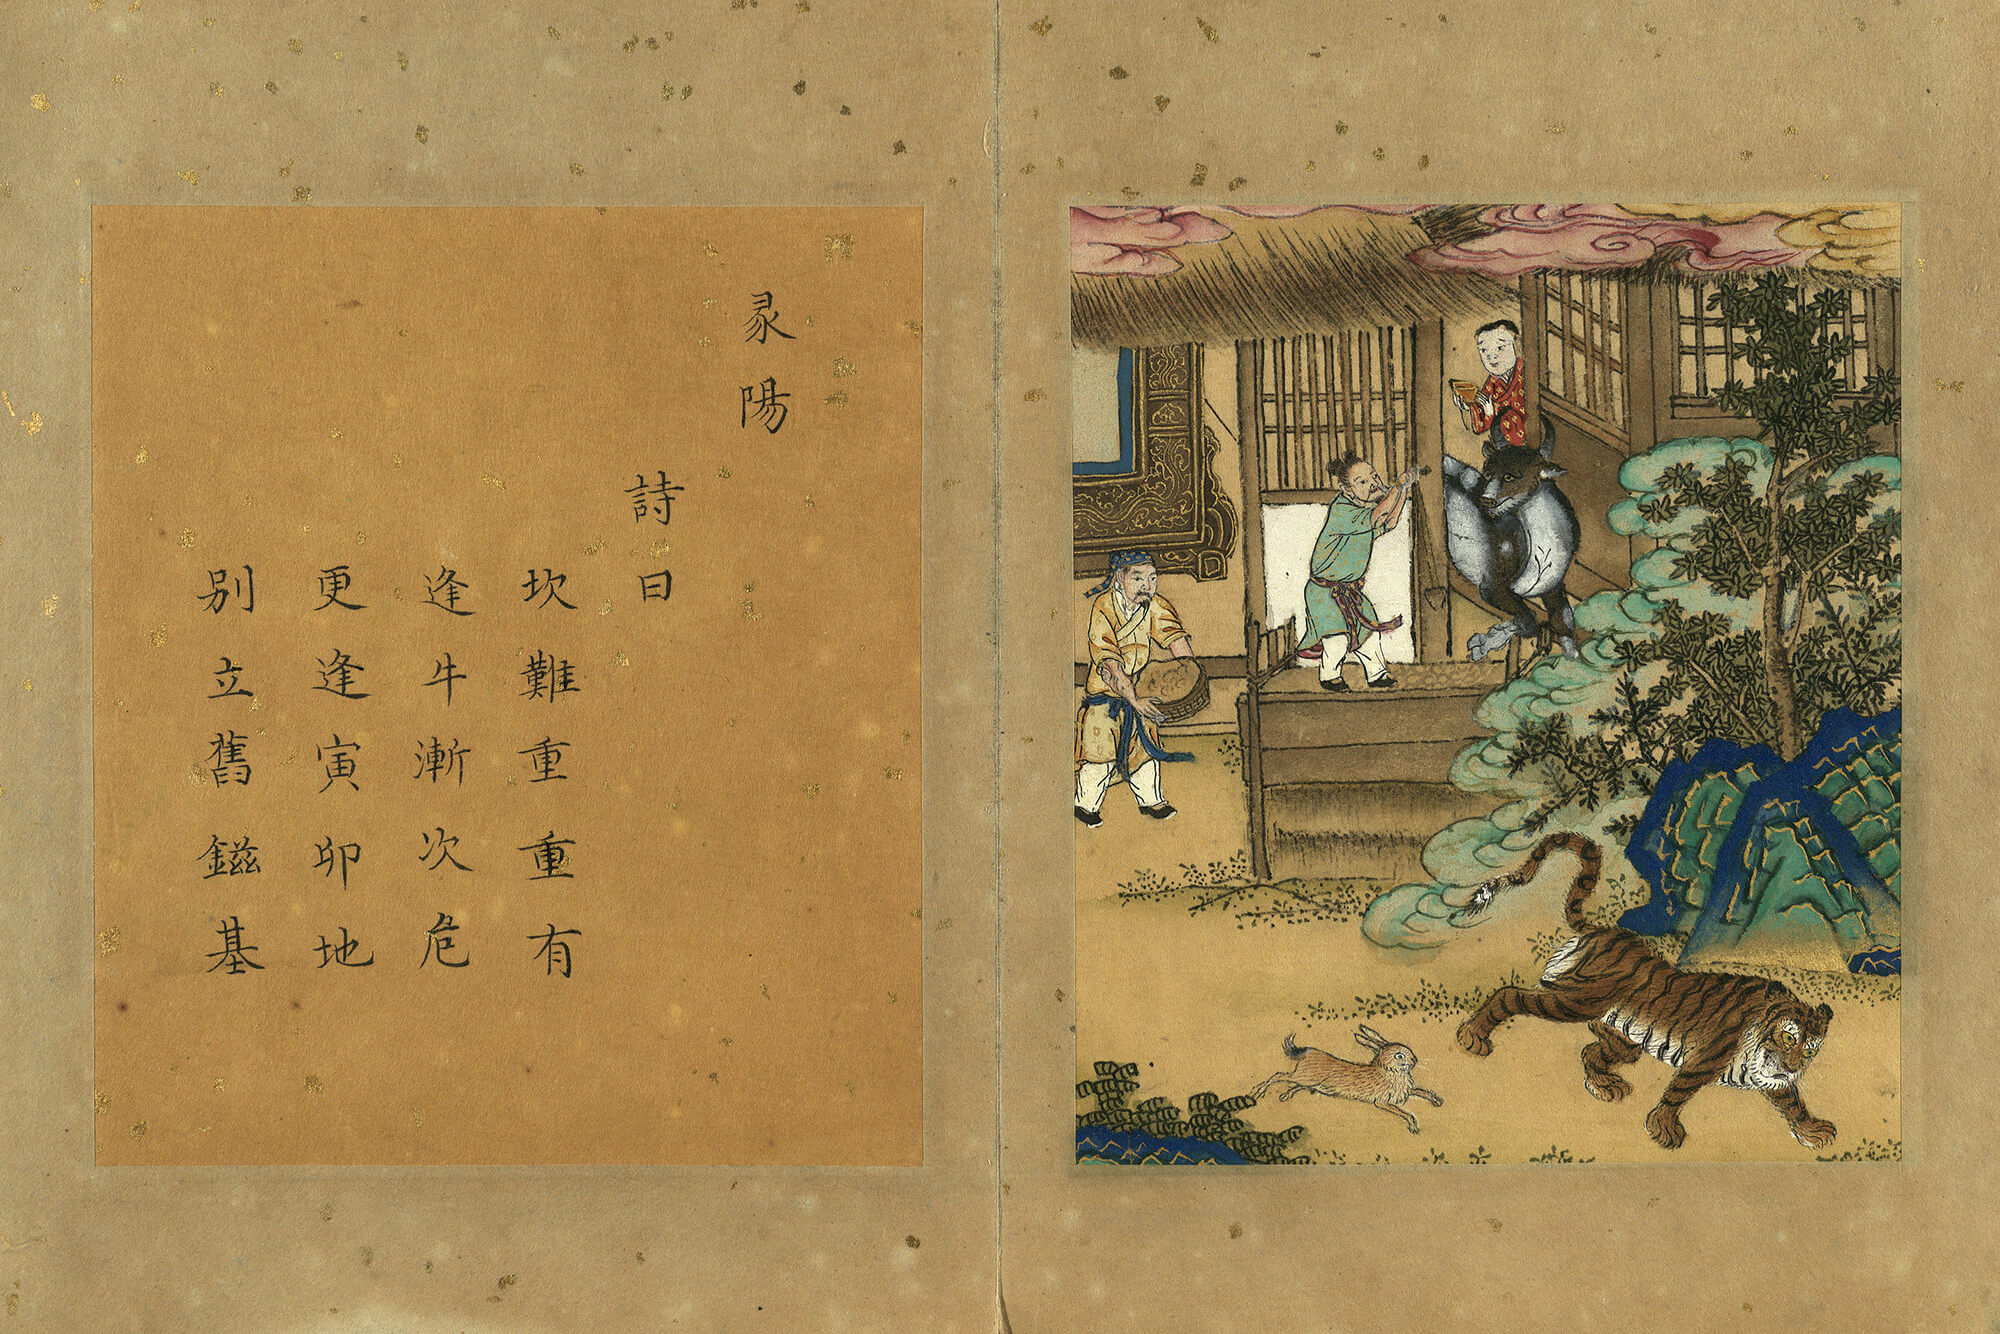 彖陽
詩曰
坎難重重有
逢牛漸次危
更逢寅卯地
別立舊鎡基